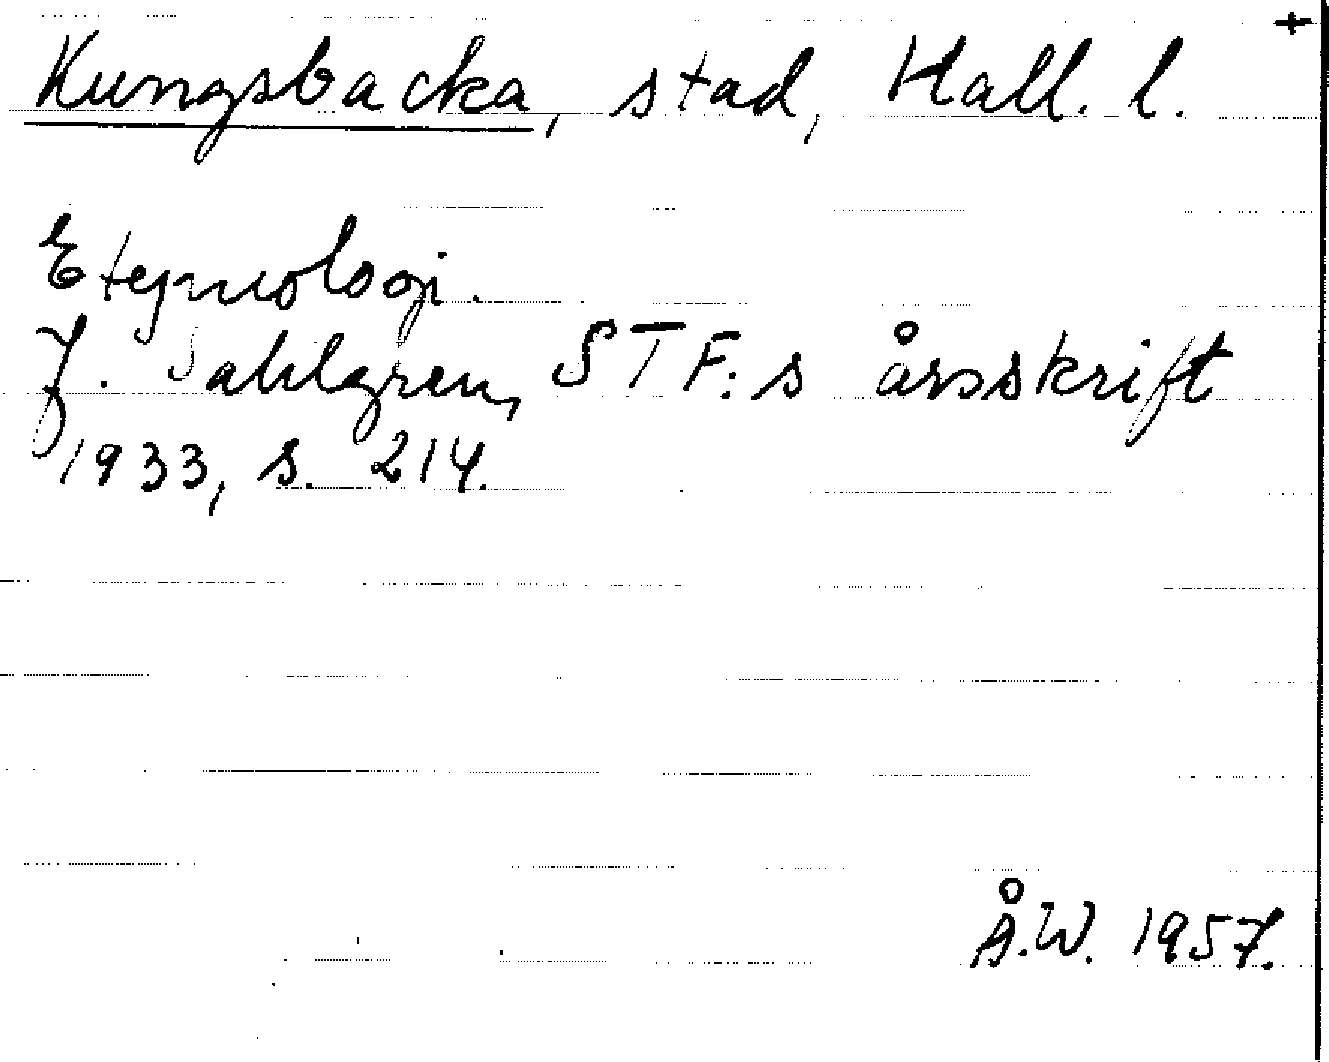 +
Kungsbacka, stad, Hall. l.
Etymologi.
J. Sahlgren, STF:s årsskrift
1933, s. 214.
Å.W. 1957.